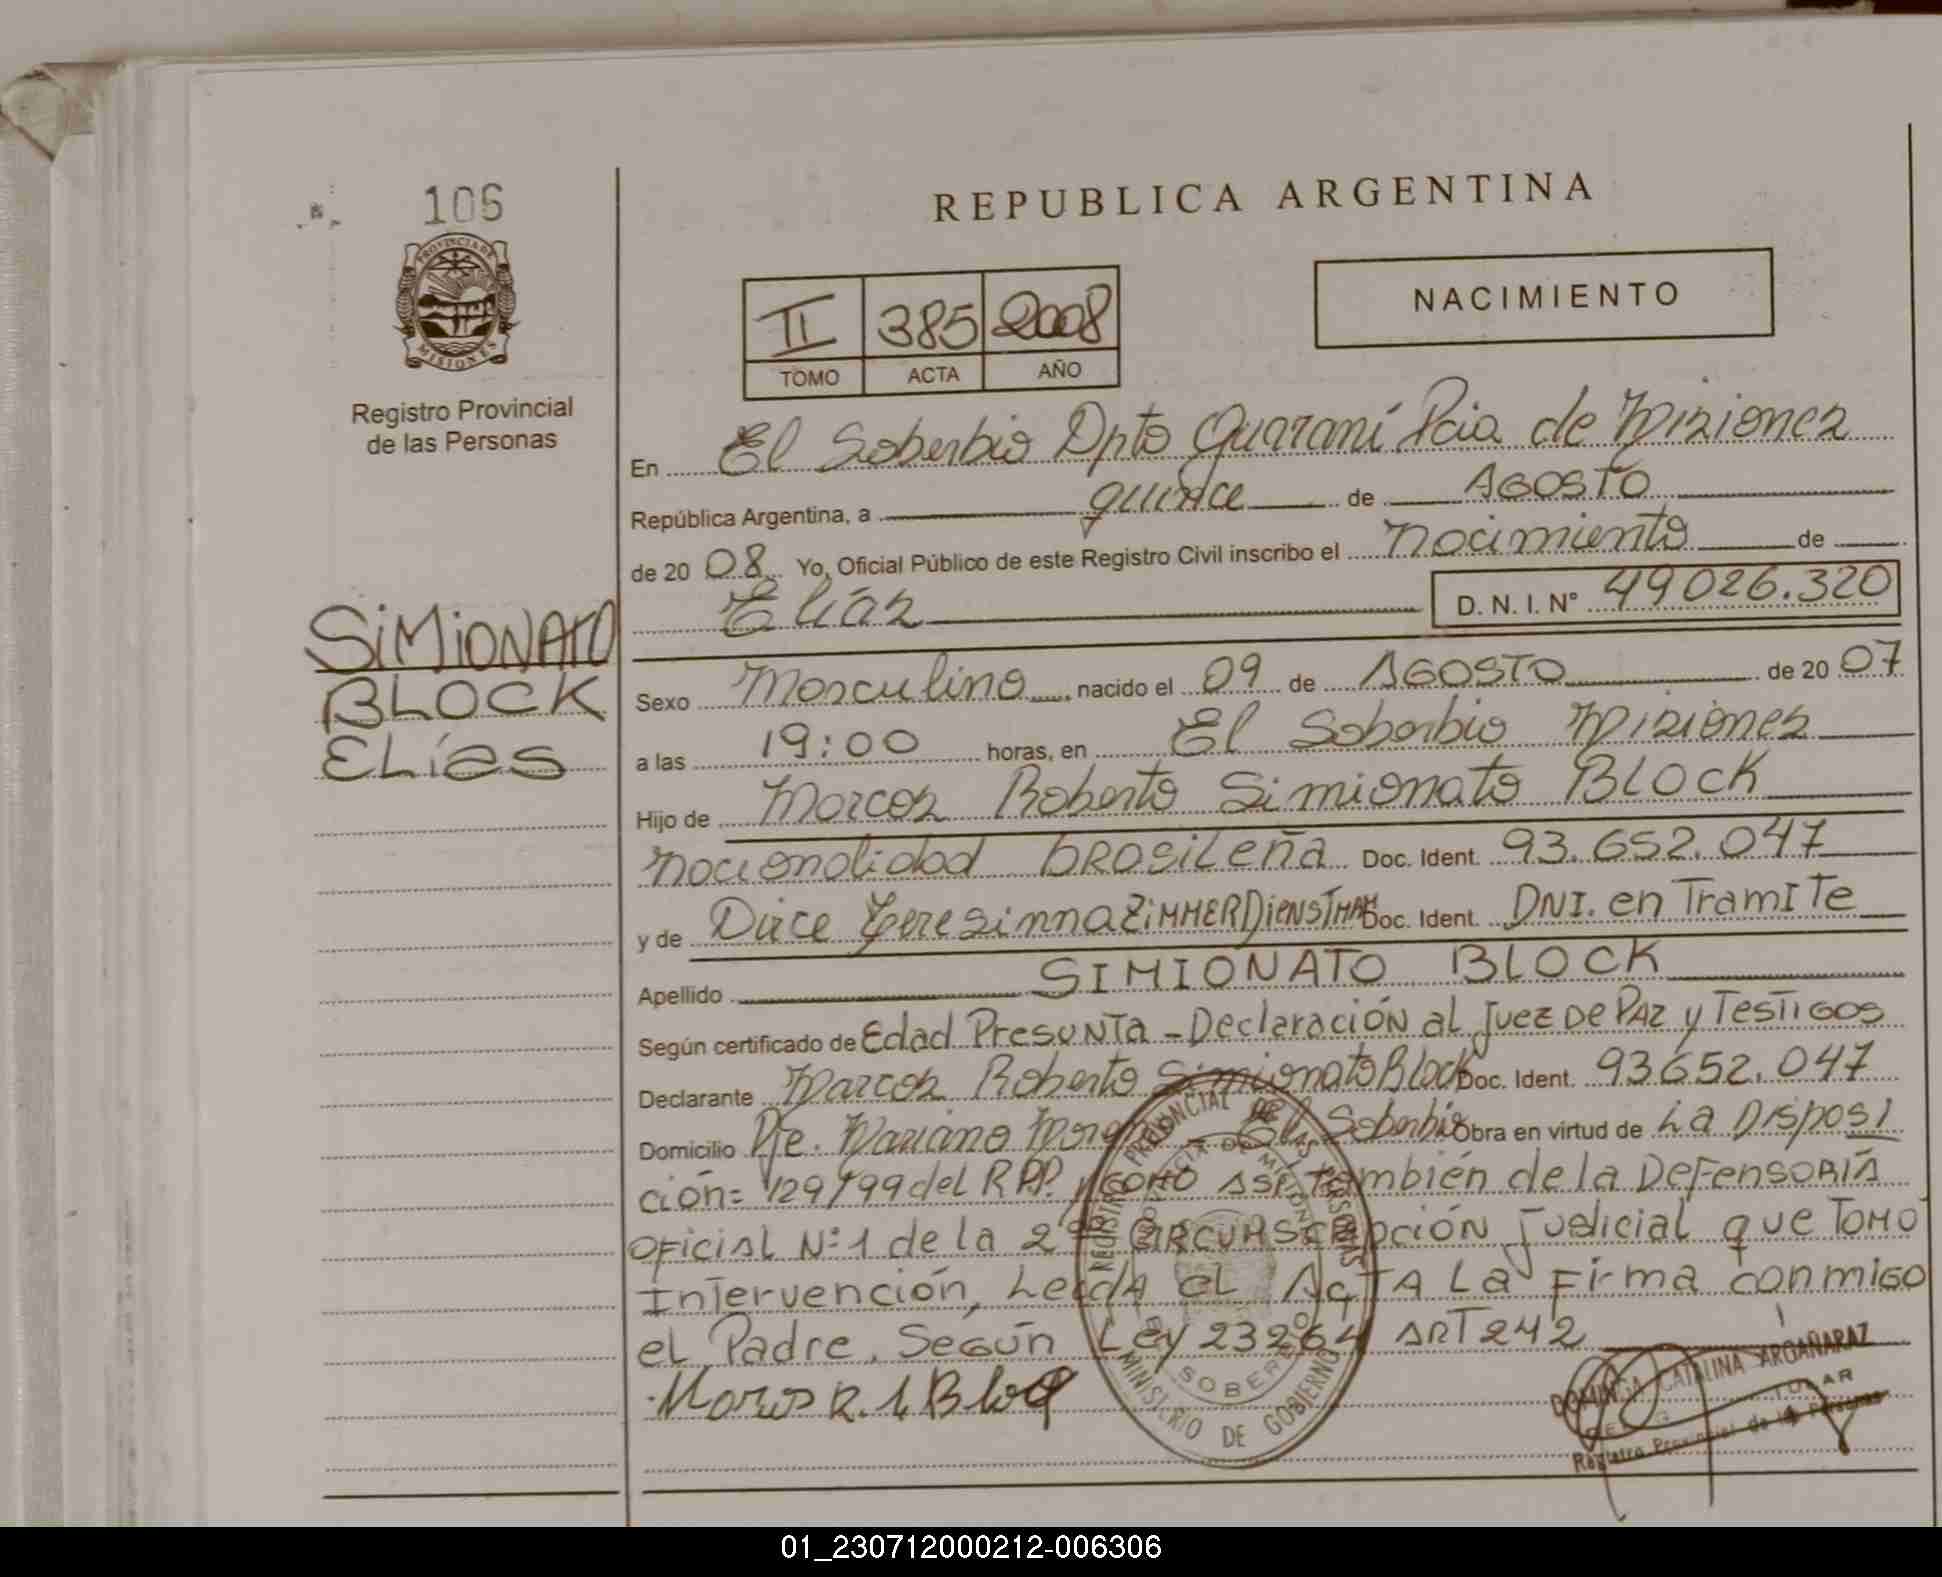 106
PROVINCIA DE
MISIONES
Registro Provincial
de las Personas
SIMIONATO
BLOCK
ELías
REPUBLICA ARGENTINA
II 385 2008
TOMO ACTA AÑO
NACIMIENTO
En El Soberbio Dpto Guaraní Pcia de Misiones
República Argentina, a quince de AGOSTO
de 2008 Yo, Oficial Público de este Registro Civil inscribo el nacimiento de
Elías D. N. I. Nº 49026.320
Sexo Masculino, nacido el 09 de AGOSTO de 2007
a las 19:00 horas, en El Soberbio Misiones
Hijo de Marcos Roberto Simionato BLOCK
nacionalidad brasileña Doc. Ident. 93.652.047
y de Dirce Teresinna ZIMMER DIENSTMAN Doc. Ident. DNI. en Tramite
Apellido SIMIONATO BLOCK
Según certificado de Edad Presunta - Declaración al Juez De Paz y Testigos
Declarante Marcos Roberto Simionato Block Doc. Ident. 93652.047
Domicilio Pje. Mariano El Soberbio Obra en virtud de La Disposi
ción= 129/99 del RPP. como asi también de la DeFensoría
oficial Nº 1 de la 2da Circunscripción Judicial que Tomo
Intervención, Leida el Acta La Firma conmigo
el Padre. Según Ley 23264 ART 242
REGISTRO PROVINCIAL DE LAS PERSONAS
MINISTERIO DE GOBIERNO
PROVINCIA DE MISIONES
EL SOBERBIO
DOMINGA CATALINA ARGAÑARAZ
Registro Provincial de las Personas
01_230712000212-006306